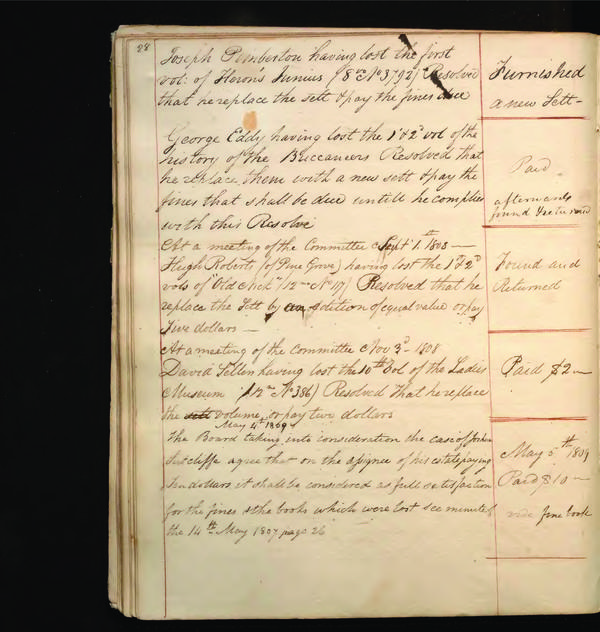 28
Joseph Pemberton having lost the first
vol: of Herons Junius (8vo No 3,792) Resolved
that he replace the sett & pay the fines due
Furnished
a new Sett-
George Eddy having lost the 1st & 2d vol of the
history of the Buccaneers Resolved that
he replace them with a new sett & pay the
fines that shall be due untill he complies
with this Resolve
Paid
afterwards
found & returned
At a meeting of the Committee Sept 1th 1808 —
Hugh Roberts (of Pine Grove) having lost the 1st & 2d
vols of "Old Nick" (12mo No 117) Resolved that he
replace the Sett by an edition of equal value or pay
five dollars —
Found and
Returned
At a meeting of the Committee Nov 3d - 1808
David Sellers having lost the 10th Vol of the Ladies
Museum (12mo No 386) Resolved that he replace
the sett volume, or pay two dollars
Paid $2 —
May 4th 1809
The Board taking into consideration the case of
Sutcliffe agree that on the assignee of his estate paying
ten dollars it shall be considered as full satisfaction
for the fines & the books which were lost see minutes
the 14th May 1807 page 26
May 5th 1809
Paid $10 —
vide fine book